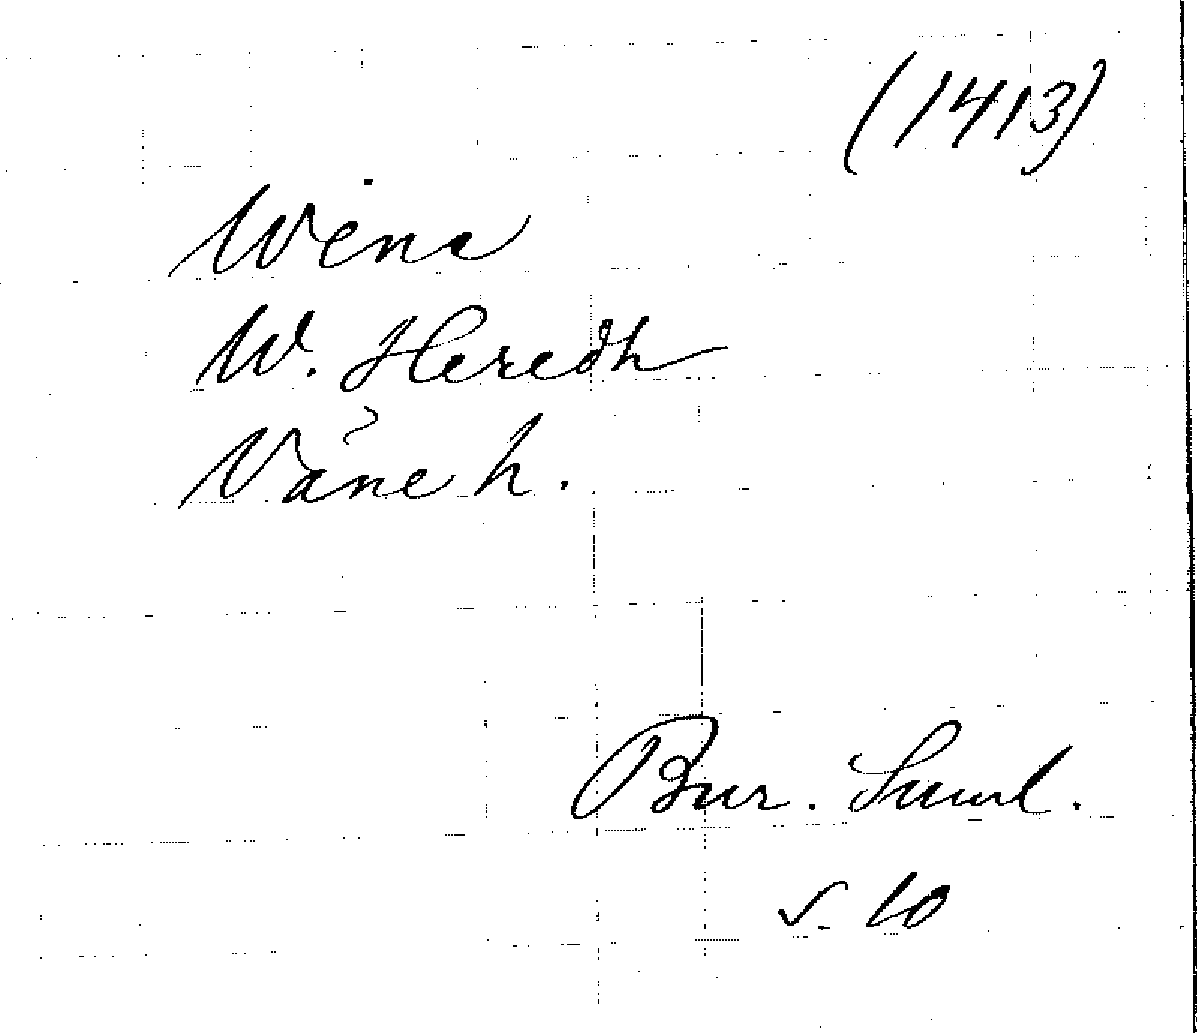 (1413)
Wena
W. Heredh
Våne h.
Bur. Saml.
s. 10